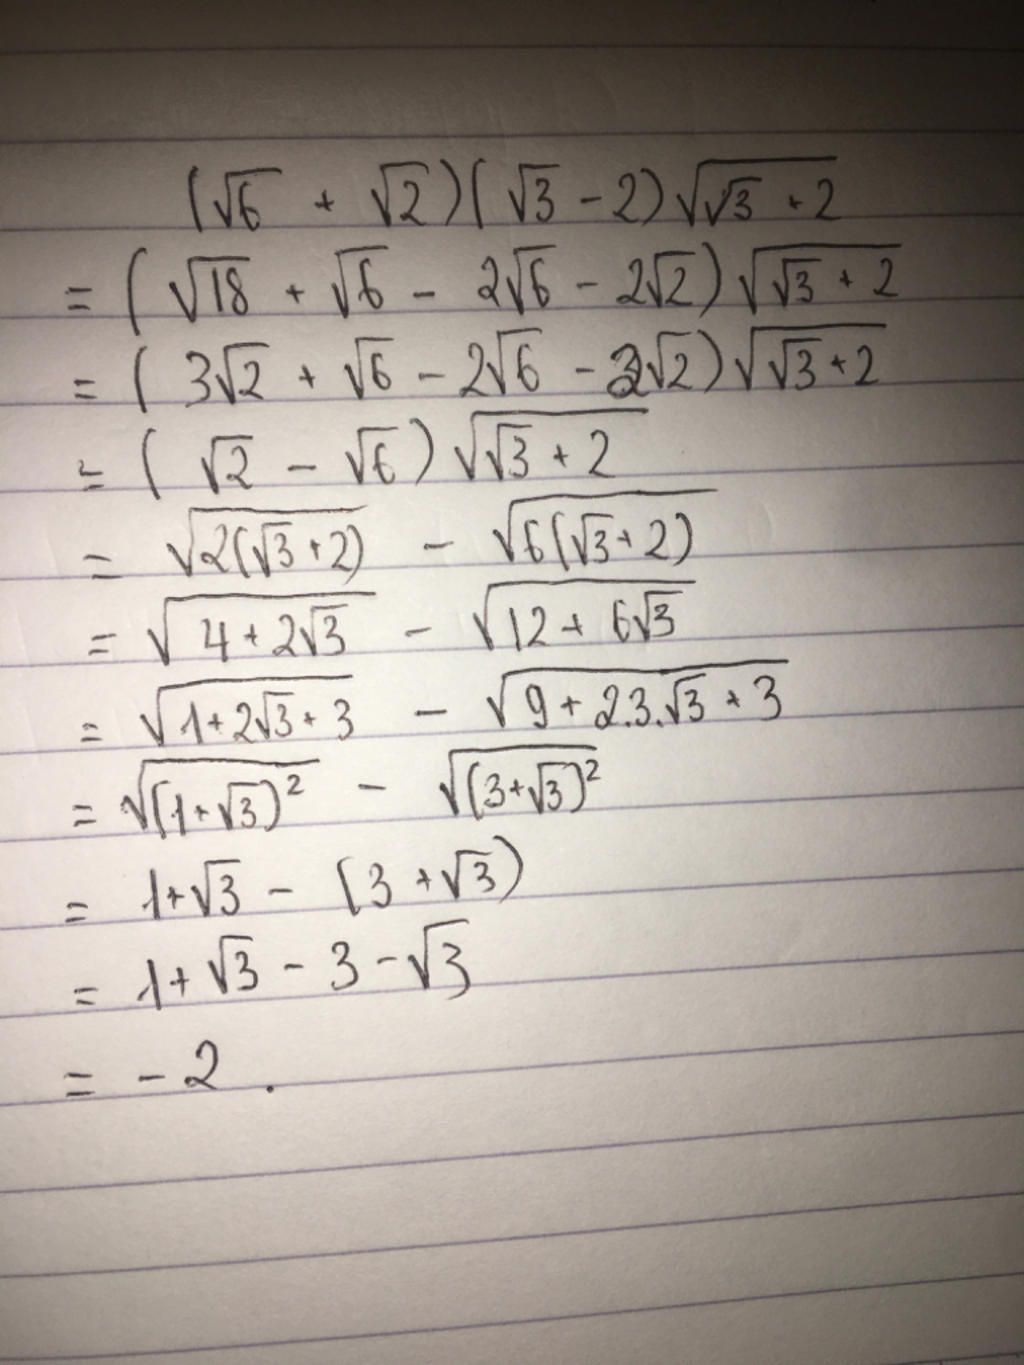 (√6 + √2)(√3 - 2)√(√3 + 2)
= (√18 + √6 - 2√6 - 2√2)√(√3 + 2)
= (3√2 + √6 - 2√6 - 2√2)√(√3 + 2)
= (√2 - √6)√(√3 + 2)
= √(2(√3 + 2)) - √(6(√3 + 2))
= √(4 + 2√3) - √(12 + 6√3)
= √(1 + 2√3 + 3) - √(9 + 2.3.√3 + 3)
= √((1 + √3)²) - √((3 + √3)²)
= 1 + √3 - (3 + √3)
= 1 + √3 - 3 - √3
= - 2 .